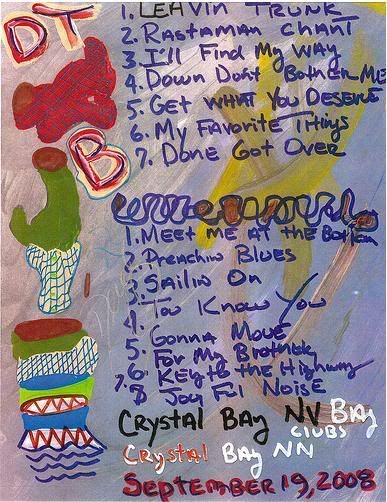 DT
1. LEAVIN TRUNK
2. RASTAMAN CHANT
3. I'll Find My WAY
4. Down Don't BOTHER ME
5. GET WHAT YOU DESERVE
6. My FAVORITE THINGS
7. DONE GOT OVER
B
1. MEET ME AT the Bottom
2. Preachin BLUES
3. SAILIN ON
Too Know You
4. Gonna MOVE
5. For My Brother
6. KEY to the Highway
7. 8 Joy Ful NoisE
CRYSTAL BAY NV BAY
CLUBS
Crystal BAY NN
SEPTEMBER 19, 2008